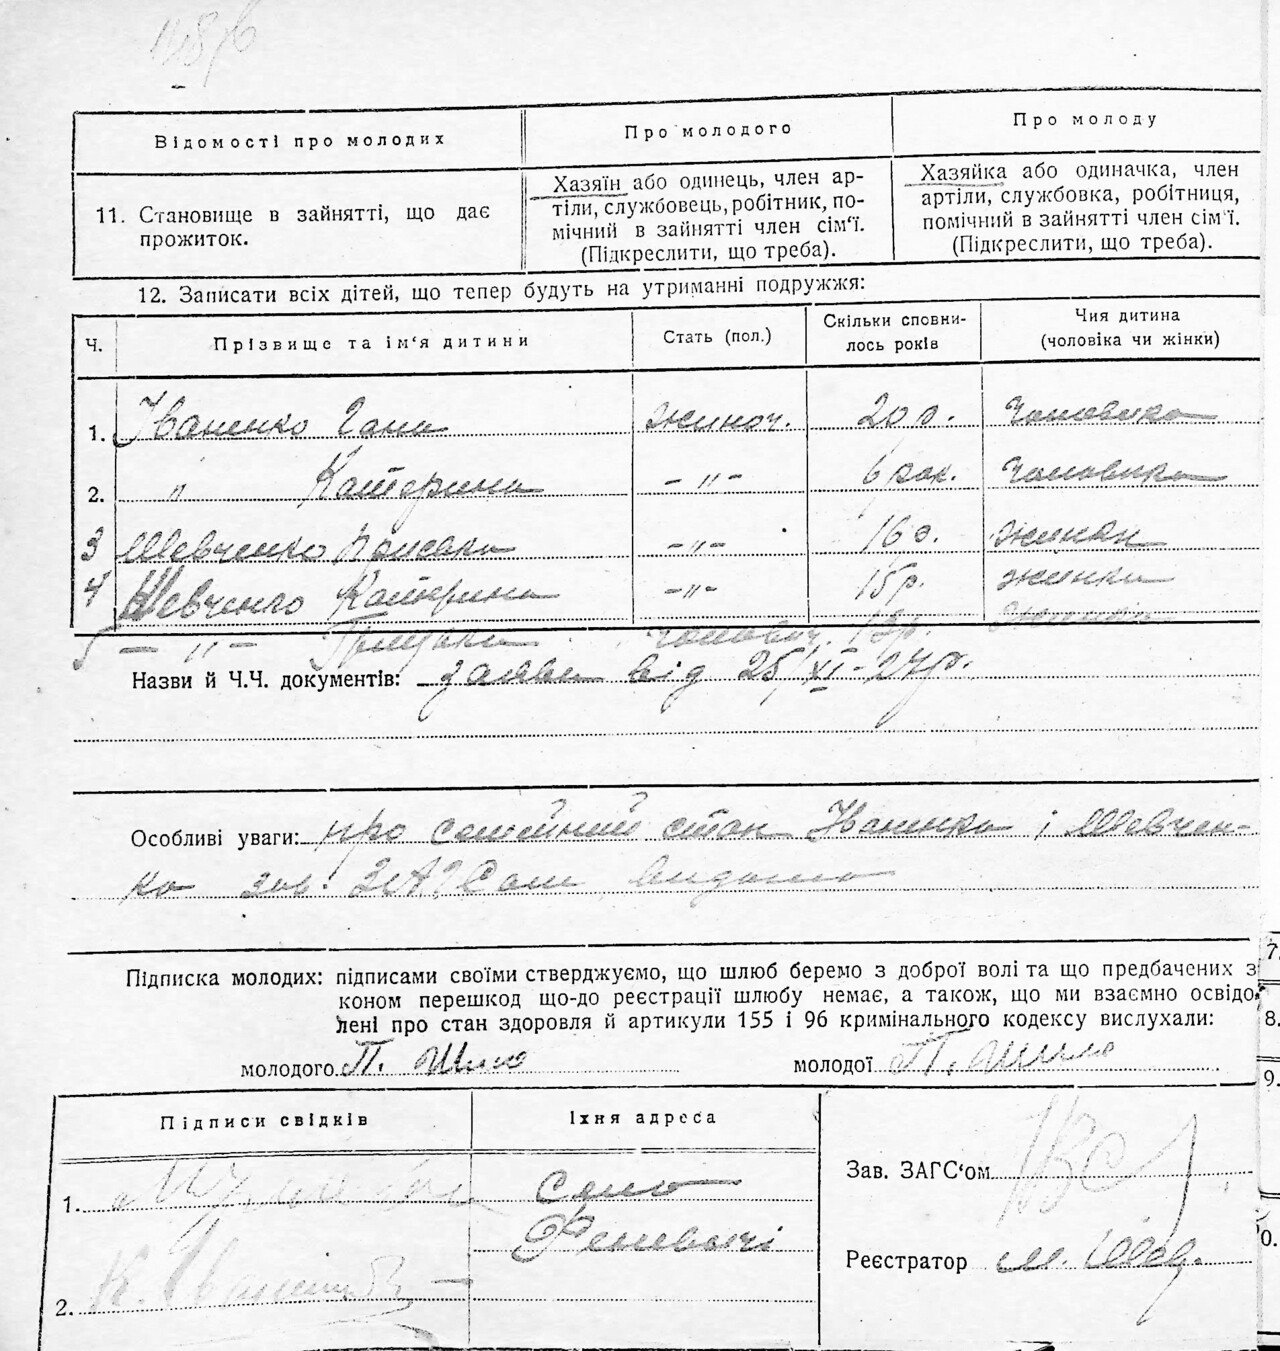 Відомості про молодих
Про молодого
Про молоду
11. Становище в зайнятті, що дає
прожиток.
Хазяїн або одинець, член ар-
тіли, службовець, робітник, по-
мічний в зайнятті член сім'ї.
(Підкреслити, що треба).
Хазяйка або одиначка, член
артіли, службовка, робітниця,
помічний в зайнятті член сім'ї.
(Підкреслити, що треба).
12. Записати всіх дітей, що тепер будуть на утриманні подружжя:
Ч.
Прізвище та ім'я дитини
Стать (пол.)
Скільки сповни-
лось років
Чия дитина
(чоловіка чи жінки)
1. Іваненко Гана жиноч. 20 р. Чоловика
2. " Катерина -"- 6 рок. Чоловика
3 Шевченко -"- 16 жинки
4 Шевченко Катерина -"- 15 р. жинки
5 -"- чолович. 13 р.
Назви й Ч.Ч. документів: заява від 25/XI-27р.
Особливі уваги: про семейний стан Іваненка і Шевчен-
ко зав. ЗАГСом видомо
Підписка молодих: підписами своїми стверджуємо, що шлюб беремо з доброї волі та що предбачених з
коном перешкод що-до реєстрації шлюбу немає, а також, що ми взаємно освідо
лені про стан здоровля й артикули 155 і 96 кримінального кодексу вислухали:
молодого П.
молодої П.
Підписи свідків
Їхня адреса
1.
Село
2.
Зав. ЗАГС'ом
Реєстратор М.
7.
8.
9.
0.